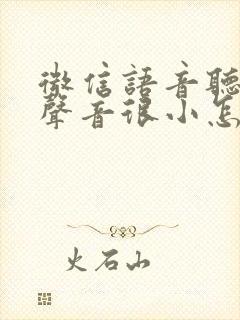 微信語音聽
聲音很小怎
火石山